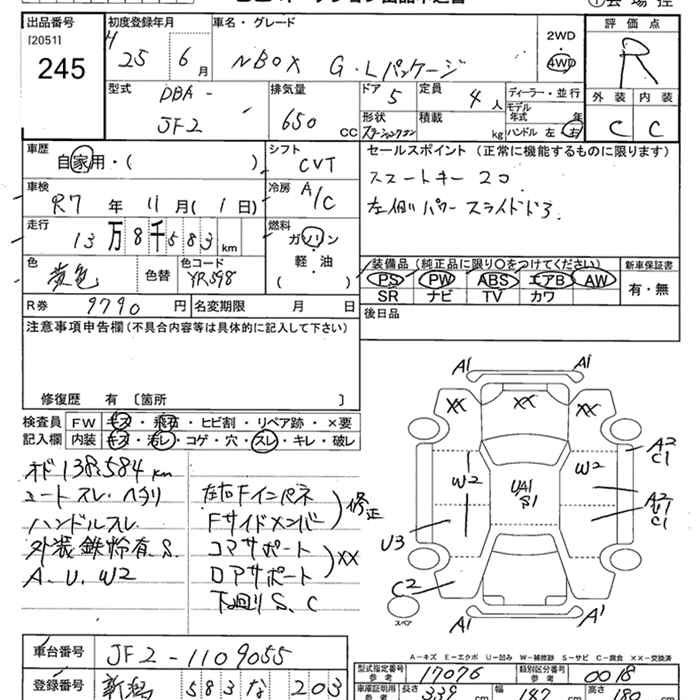 出品番号 初度登録年月 車名・グレード 2WD 評価点
[2051] 4 25 6月 NBOX G・Lパッケージ 4WD R
245
型式 排気量 ドア 定員 ディーラー・並行 外装 内装
DBA- 5 4人 モデル年式 年 C C
JF2 650 CC 形状 積載 kg ハンドル 左 右
車歴 シフト セールスポイント(正常に機能するものに限ります)
自家用・( ) CVT スマートキー 2コ
車検 冷房 左側パワースライドドア
R7年 11月(1日) A/C
走行 燃料
13万8千583km ガソリン
軽・油
( )
色 色替 色コード 装備品(純正品に限り○をつけてください) 新車保証書
黄色 YR598 PS PW ABS エアB AW 有・無
SR ナビ TV カワ
R券 9790円 名変期限 月 日 後日品
注意事項申告欄(不具合内容等は具体的に記入して下さい)
修復歴 有 〔箇所 〕
検査員 FW キズ・飛石・ヒビ割・リペア跡・×要
記入欄 内装 キズ・汚レ・コゲ・穴・スレ・キレ・破レ
138584km
シートスレ・ヘタリ 左右Fインパネ
ハンドルスレ Fサイドメンバー 修正
外装鉄粉有 S. コアサポート
A. U. W2 ロアサポート XX
下廻りS、C
A1 A1
XX XX XX
A2
C1
W2 UA1 W2
S1 A2
U1
C1
U3
C2
スペア A1 A1
A-キズ E-エクボ U-凹み W-補修跡 S-サビ C-腐食 ××-交換済
車台番号 JF2-1109055
型式指定番号 参考 17076 類別区分番号 参考 0018
登録番号 新潟 583 な 203
車庫証明用 参考 長さ 339 cm 幅 147 cm 高さ 180 cm